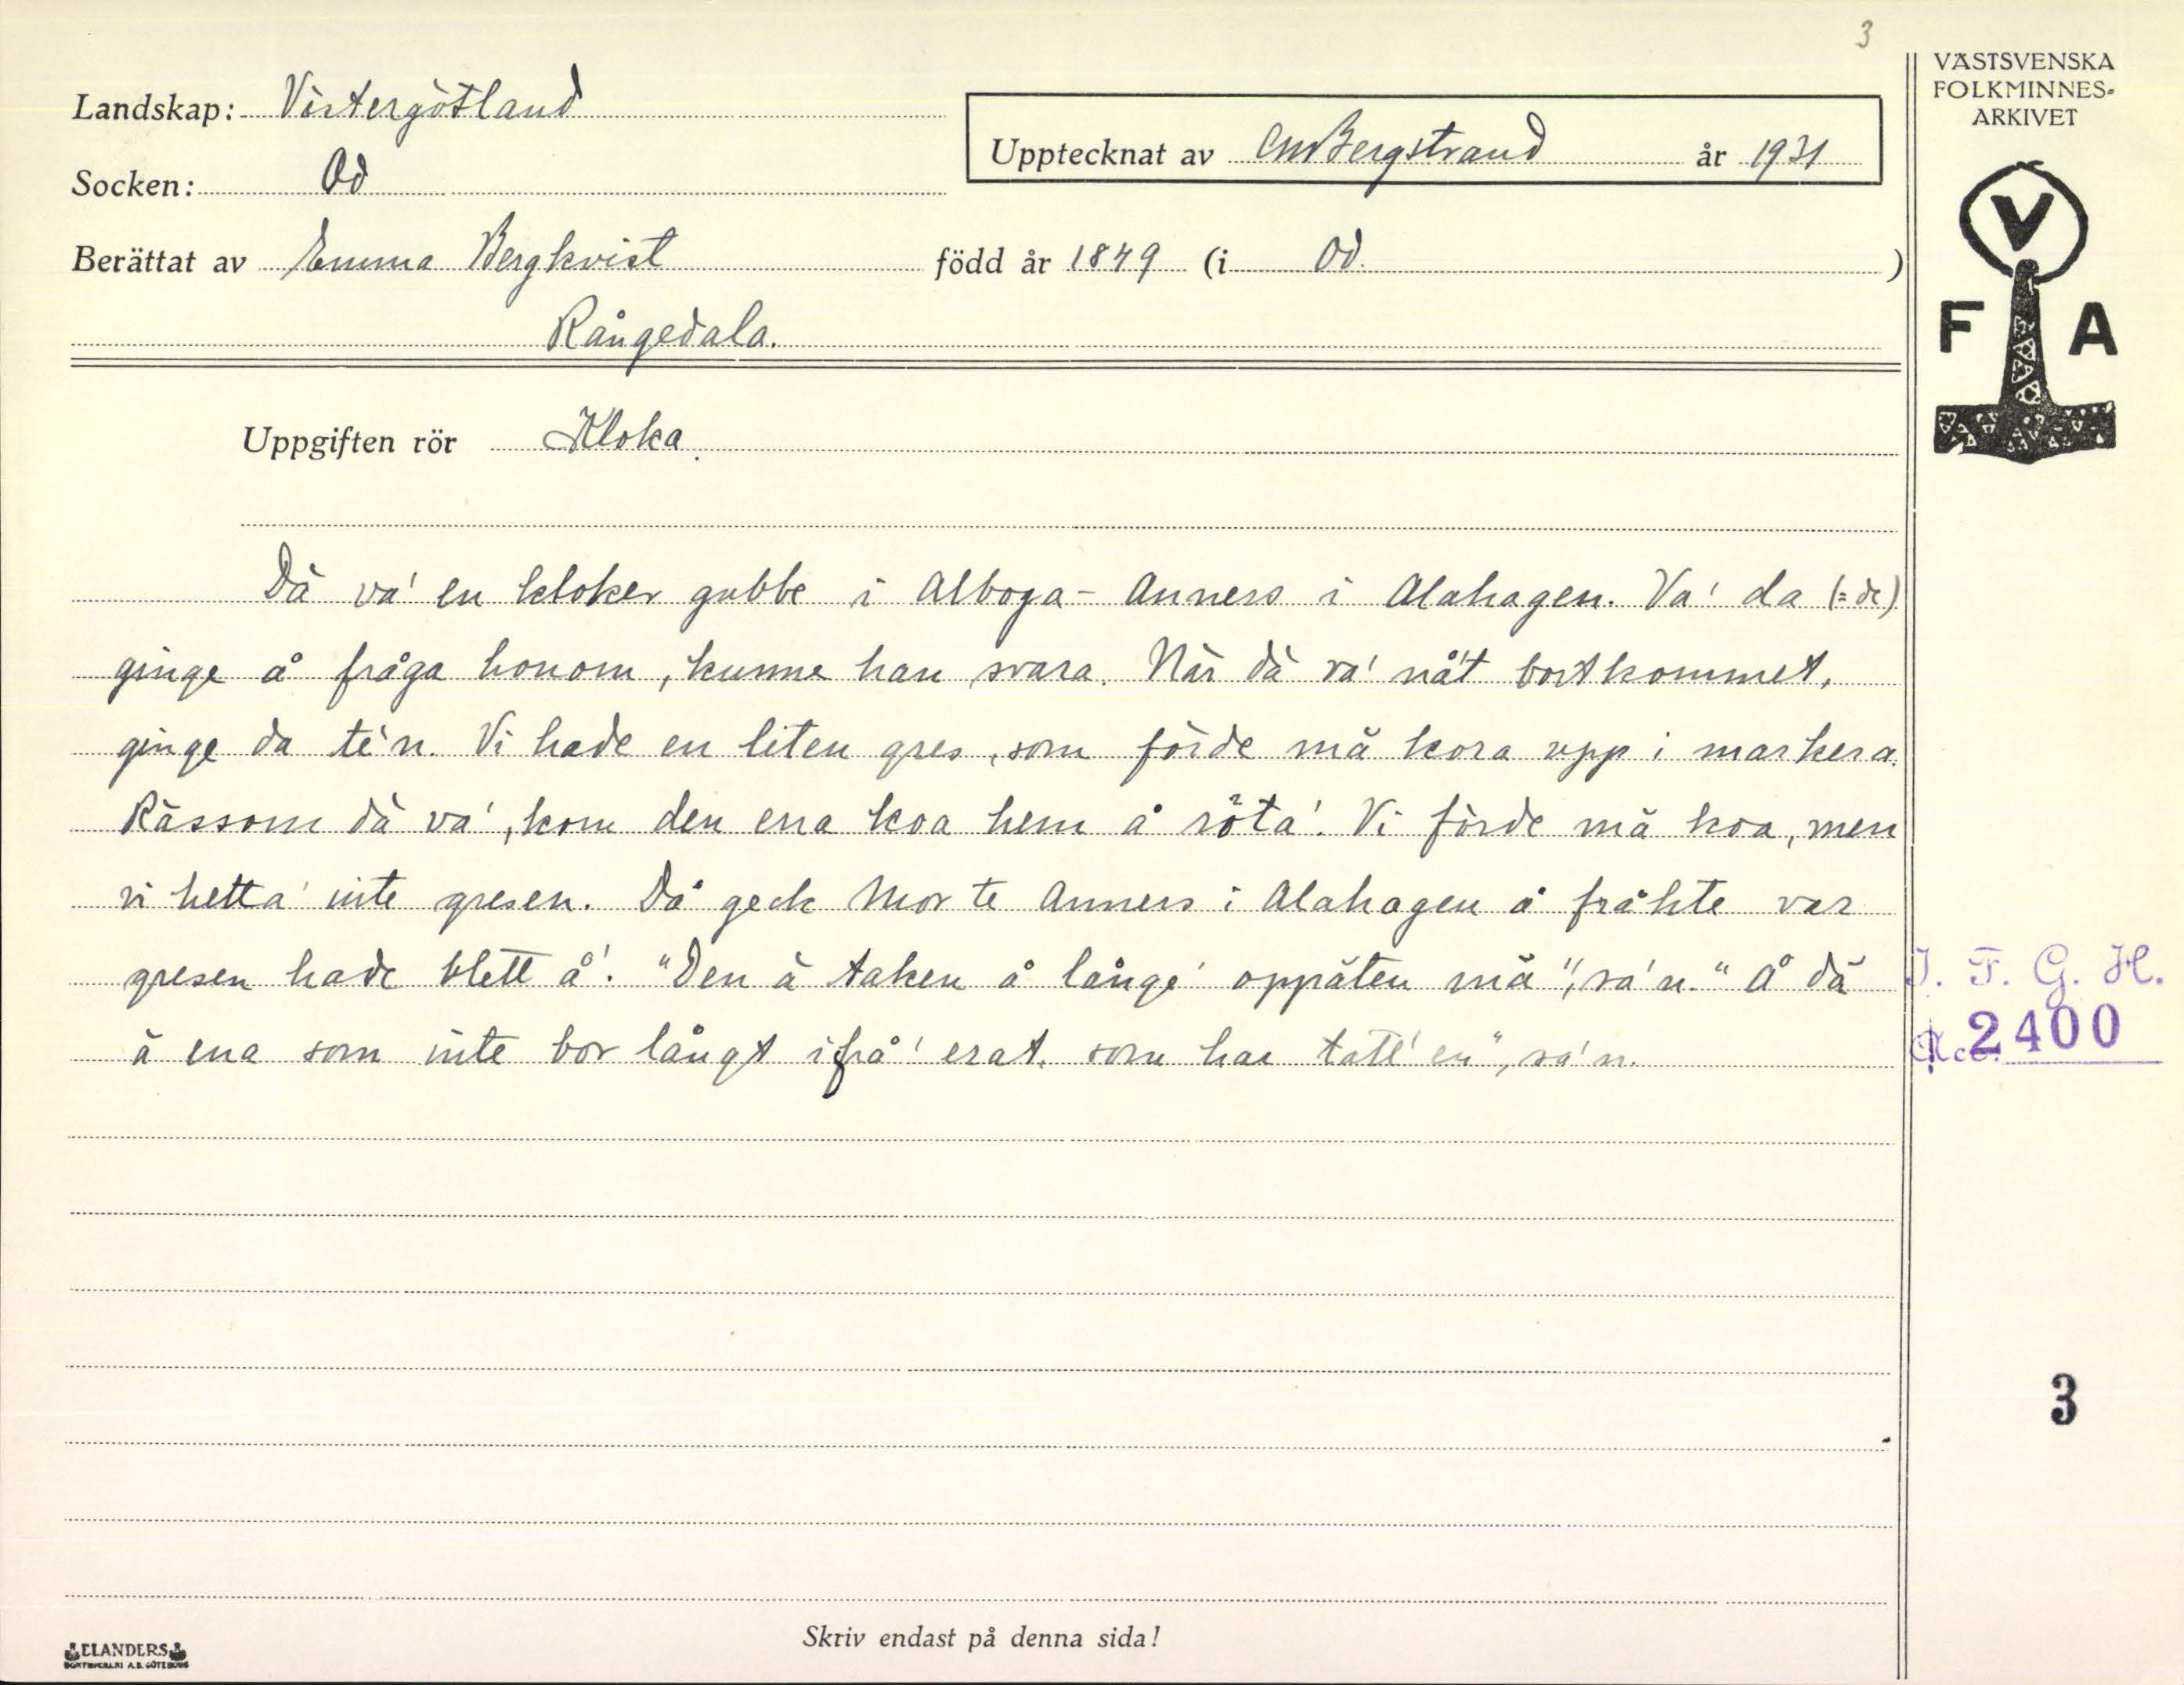 3
VÄSTSVENSKA
FOLKMINNES-
ARKIVET
Landskap: Västergötland
Upptecknat av CMBergstrand år 1931
Socken: Od
Berättat av Emma Bergkvist född år 1849 (i Od.)
Rångedala.
V
F A
Uppgiften rör Kloka
Dä va' en kloker gubbe i Alboga - Anners i Alahagen. Va' da (= de)
ginge å fråga honom, kunne han svara. När dä va' nå't bortkommet,
ginge da te'n. Vi hade en liten gres, som förde mä kora upp i markera.
Rässom dä va', kom den ena koa hem å röta'. Vi förde mä koa, men
vi hetta' inte gresen. Då geck Mor te Anners i Alahagen å fråkte var
gresen hade blett å'. "Den ä taken å långe' oppäten mä", sa'n. "Å dä
ä ena som inte bor långt ifrå' erat, som har tatt' en", sa'n.
I. F. G. H.
Acc. 2400
3
Skriv endast på denna sida!
ELANDERS
BOKTRYCKERI A.B. GÖTEBORG